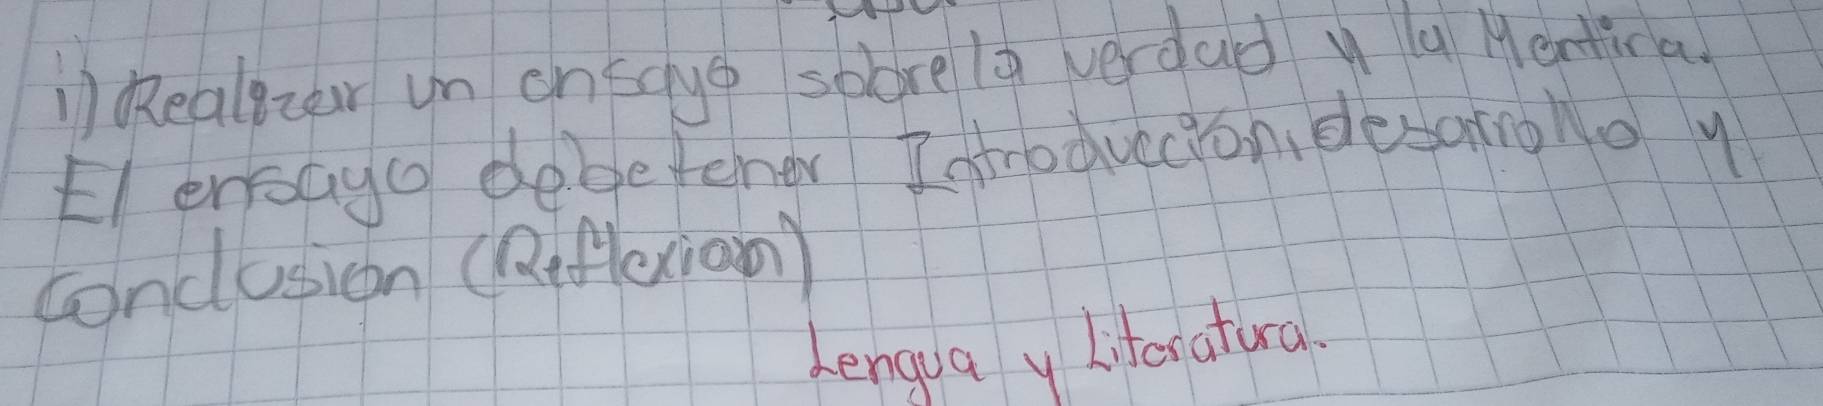 i) Realizar un ensayo sobre la verdad y la Mentira.
El ensayo debe tener Introduccion, desarrollo y
Conclusion (Reflexion)
Lengua y Literatura.